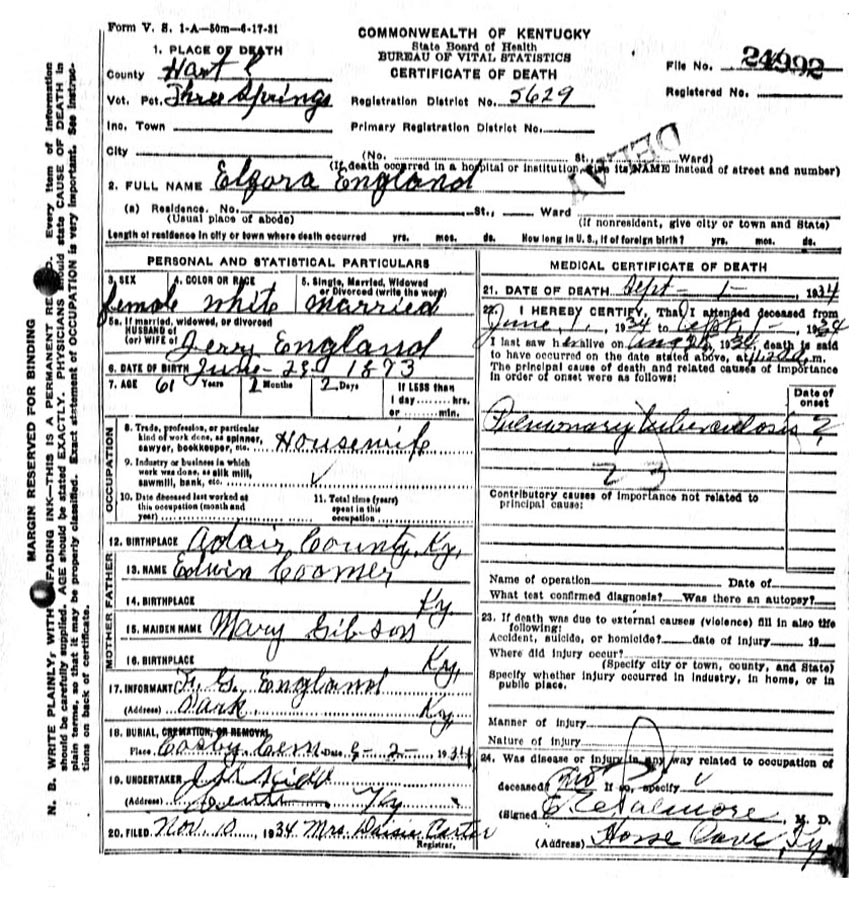 Form V. S. 1-A—50m—6-17-31
COMMONWEALTH OF KENTUCKY
State Board of Health
BUREAU OF VITAL STATISTICS
CERTIFICATE OF DEATH
File No. 24992
Registered No.
1. PLACE OF DEATH
County Hart
Vot. Pct. Three Springs
Registration District No. 5629
Inc. Town
Primary Registration District No.
City (No. St., Ward)
(If death occurred in a hospital or institution, give its NAME instead of street and number)
DELAY
2. FULL NAME Elgora England
(a) Residence. No. St., Ward
(Usual place of abode) (If nonresident, give city or town and State)
Length of residence in city or town where death occurred yrs. mos. ds. How long in U. S., if of foreign birth? yrs. mos. ds.
PERSONAL AND STATISTICAL PARTICULARS
3. SEX 4. COLOR OR RACE 5. Single, Married, Widowed
or Divorced (write the word)
female white married
5a. If married, widowed, or divorced
HUSBAND of
(or) WIFE of Jerry England
6. DATE OF BIRTH June 29 1873
7. AGE 61 Years 2 Months 2 Days If LESS than
1 day........hrs.
or ........min.
OCCUPATION
8. Trade, profession, or particular
kind of work done, as spinner,
sawyer, bookkeeper, etc. Housewife
9. Industry or business in which
work was done, as silk mill,
sawmill, bank, etc. ✓
10. Date deceased last worked at
this occupation (month and
year)
11. Total time (years)
spent in this
occupation
12. BIRTHPLACE Adair County, Ky.
FATHER
13. NAME Edwin Coomer
14. BIRTHPLACE Ky.
MOTHER
15. MAIDEN NAME Mary Gibson
16. BIRTHPLACE Ky.
17. INFORMANT F. G. England
(Address) Park Ky.
18. BURIAL, CREMATION, OR REMOVAL
Place Cosby Cem Date 9-2- 1934
19. UNDERTAKER
(Address) Ky
20. FILED Nov. 10, 1934 Mrs Daisie Carter
Registrar.
MEDICAL CERTIFICATE OF DEATH
21. DATE OF DEATH Sept - 1 - , 1934
22. I HEREBY CERTIFY, That I attended deceased from
June 1, 1934 to Sept, 1 - , 1934
I last saw her alive on Aug 1934, death is said
to have occurred on the date stated above, at m.
The principal cause of death and related causes of importance
in order of onset were as follows:
Date of
onset
Pulmonary tuberculosis ?
23
Contributory causes of importance not related to
principal cause:
Name of operation Date of
What test confirmed diagnosis? Was there an autopsy?
23. If death was due to external causes (violence) fill in also the
following:
Accident, suicide, or homicide? date of injury 19
Where did injury occur?
(Specify city or town, county, and State)
Specify whether injury occurred in industry, in home, or in
public place.
Manner of injury
Nature of injury
24. Was disease or injury in any way related to occupation of
deceased? no If so, specify ✓
(Signed) M. D.
(Address) Horse Cave, Ky.
MARGIN RESERVED FOR BINDING
N. B. WRITE PLAINLY, WITH UNFADING INK—THIS IS A PERMANENT RECORD. Every item of information
should be carefully supplied. AGE should be stated EXACTLY. PHYSICIANS should state CAUSE OF DEATH in
plain terms, so that it may be properly classified. Exact statement of OCCUPATION is very important. See instruc-
tions on back of certificate.